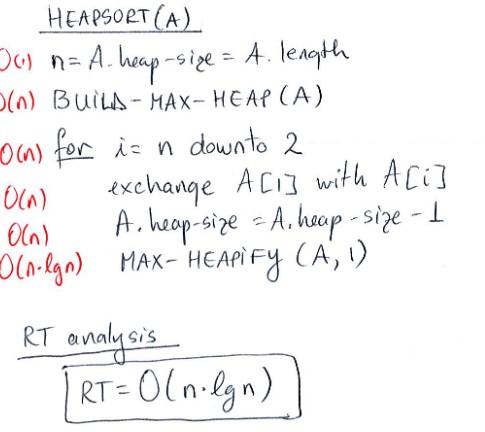 HEAPSORT(A)
O(1) n = A.heap-size = A.length
O(n) BUILD-MAX-HEAP(A)
O(n) for i = n downto 2
O(n) exchange A[1] with A[i]
O(n) A.heap-size = A.heap-size - 1
O(n·lgn) MAX-HEAPIFY(A,1)
RT analysis
RT = O(n·lgn)